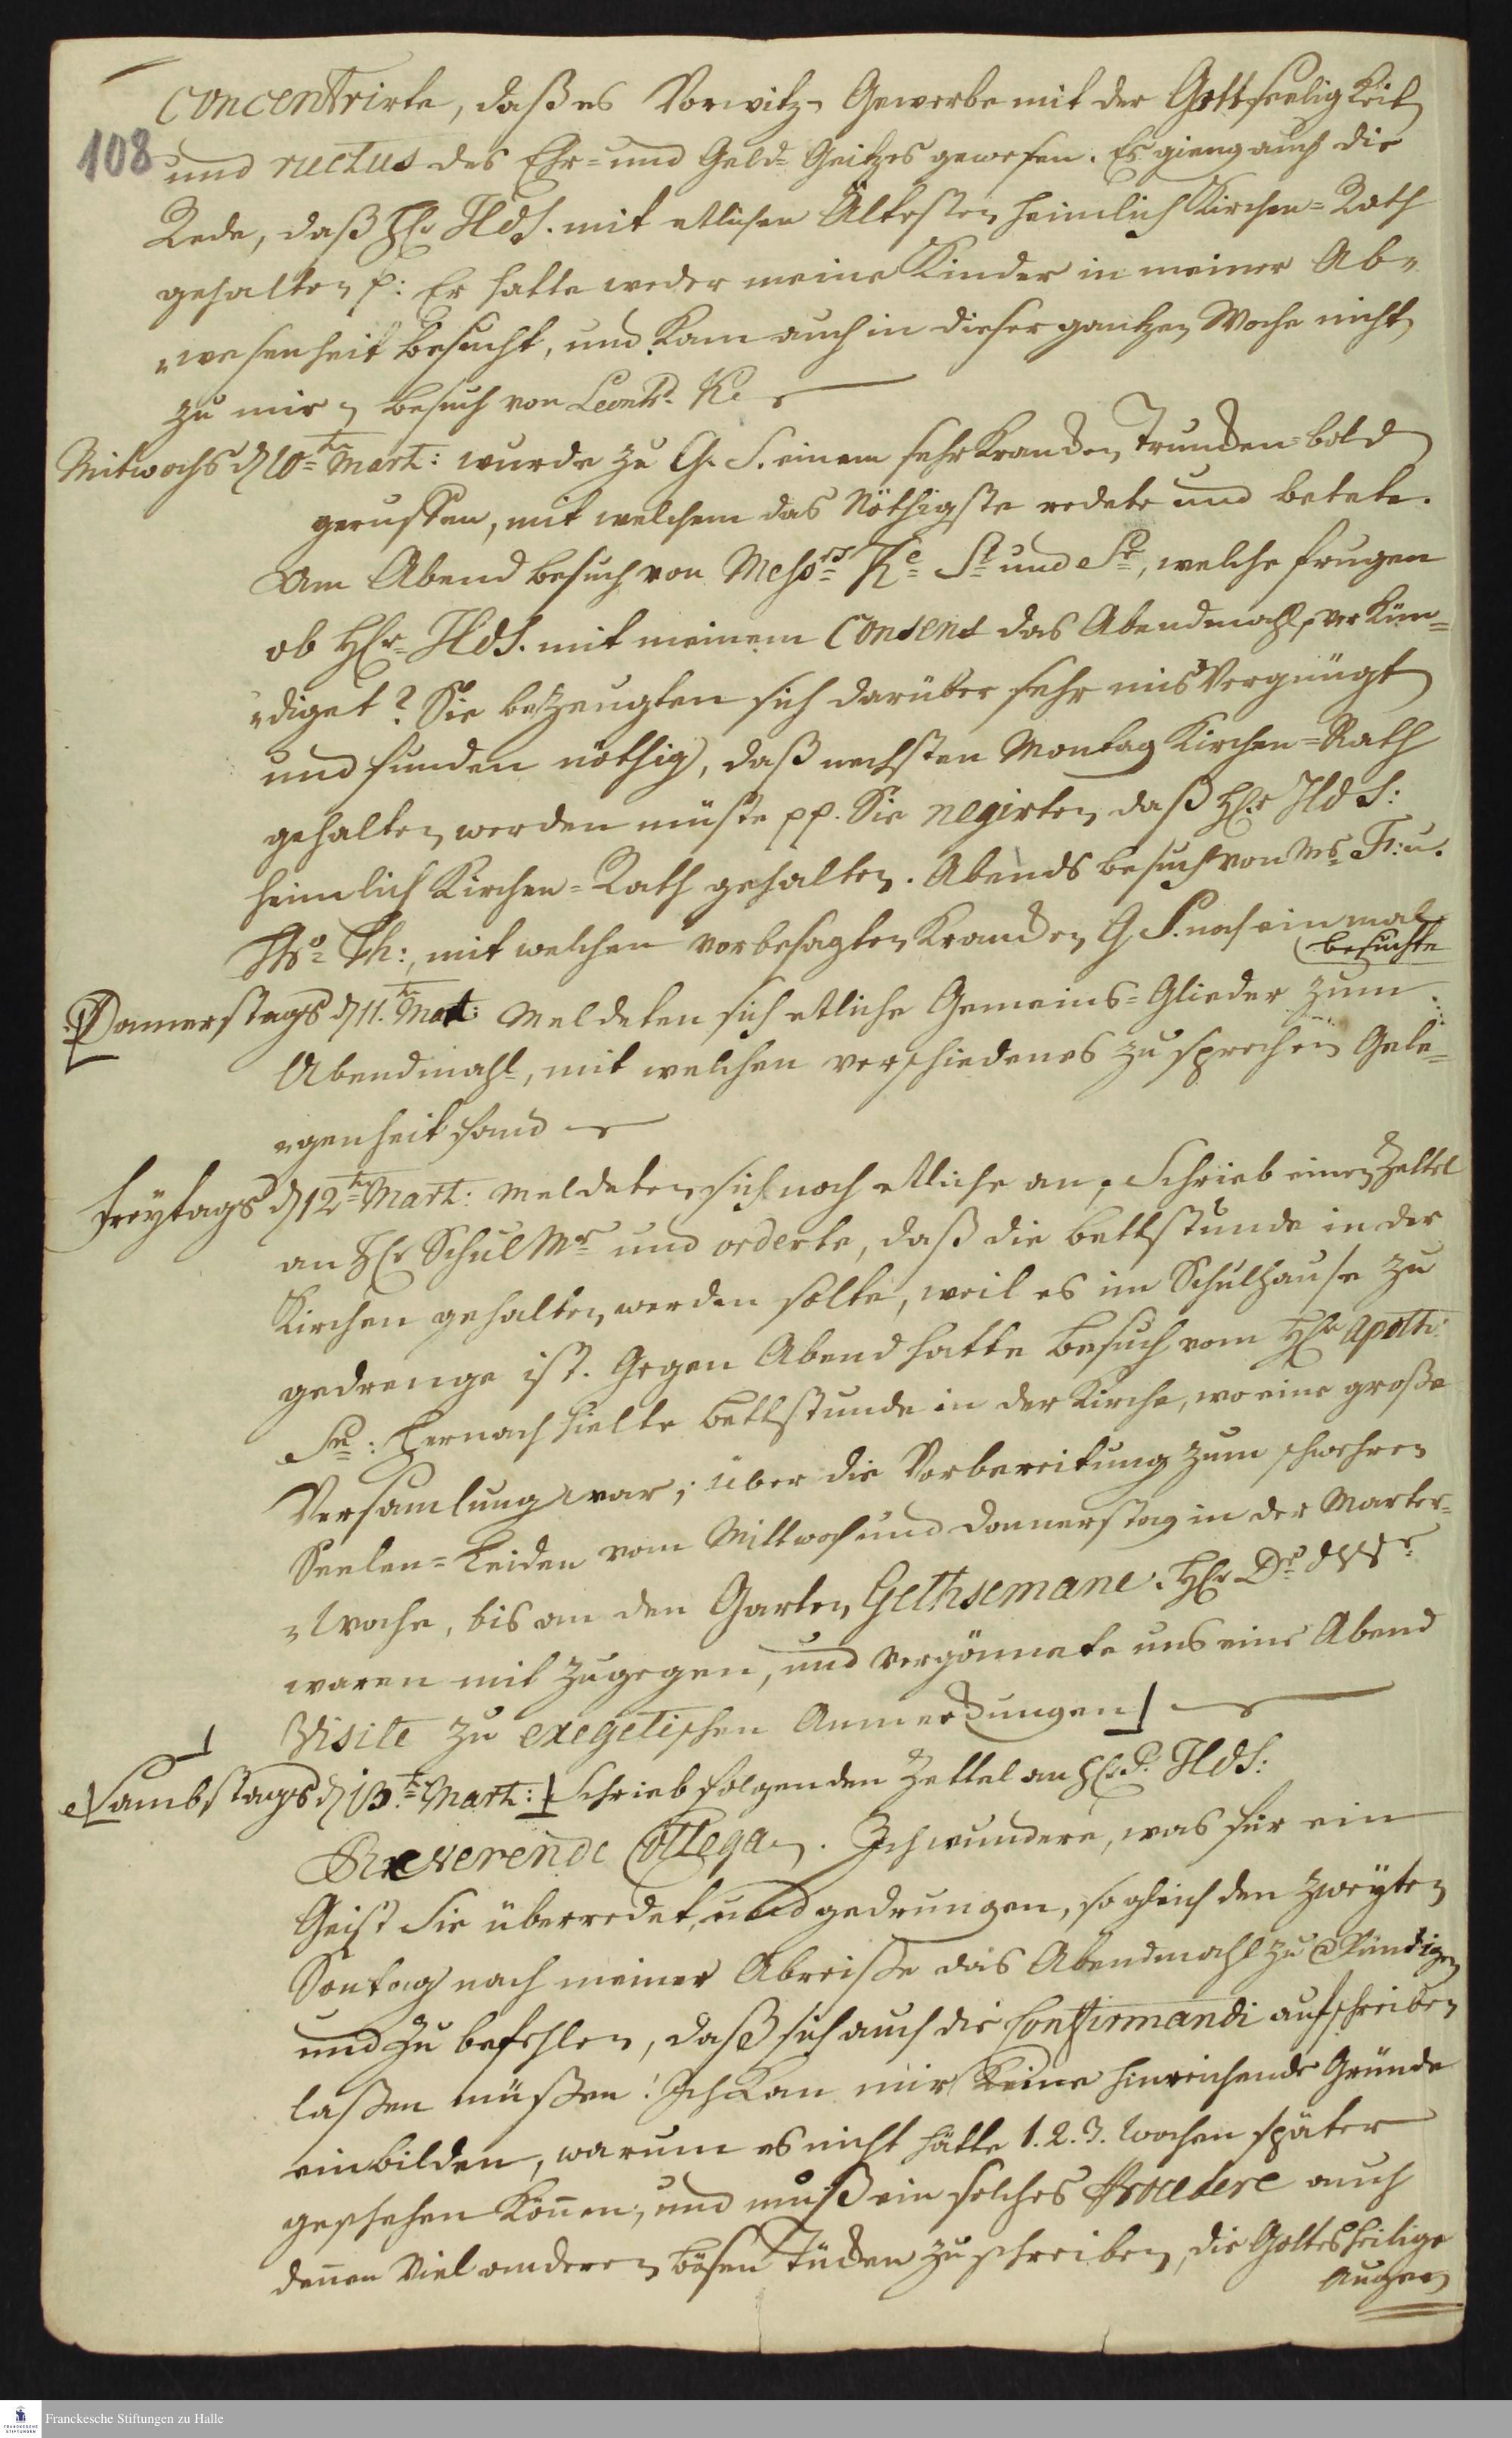 concentrirte, daß es Vorwitz, Gewerbe mit der Gottseeligkeit
108
und ructus des Ehr- und Geld-Geitzes gewesen. Es gieng auch die
Rede, daß Hr HdS. mit etlichen Ältesten heimlich Kirchen-Rath
gehalten p: Er hatte weder meine Kinder in meiner Ab-
wesenheit besucht, und kam auch in dieser gantzen Woche nicht
zu mir, besuch von Leonh. Ke
Mitwochs d 10ten Mart: wurde zu G. S. einem sehr krancken Truncken-bold
geruffen, mit welchem das Nöthigste redete und betete.
Am Abend besuch von Messrs Ke Sl und Sr, welche frugen
ob Hr HdS. mit meinem Consens das Abendmahl verkün-
diget? Sie bezeugten sich darüber sehr misvergnügt
und funden nöthig, daß nechsten Montag Kirchen-Rath
gehalten werden müste pp. Sie negirten, daß Hr HdS:
heimlich Kirchen-Rath gehalten. Abends besuch von Ms Fr: u.
Th:, mit welchen vorbesagten Krancken G S. noch einmal
besuchte
Donnerstags d 11. ten Mart: Meldeten sich etliche Gemeins-Glieder zum
Abendmahl, mit welchen verschiedenes zu sprechen Gele-
genheit fand
Freytags d 12ten Mart: meldeten sich noch etliche an, Schrieb einen Zettel
an Hr SchulMr und orderte, daß die bettstunde in der
Kirchen gehalten werden solte, weil es im Schulhause zu
gedrenge ist. Gegen Abend hatte besuch vom Hrn Apoth:
Sr: Hernach hielte bettstunde in der Kirche, wo eine große
Versamlung war; über die Vorbereitung zum schwehren
Seelen-Leiden vom Mittwoch und Donnerstag in der Marter-
Woche, bis an den Garten Gethsemane. Hr Dr
waren mit zugegen, und vergönnete uns eine Abend
Visite zu exegetischen Anmerckungen
Sambstags d 13ten Mart: Schrieb folgenden Zettel an Hr P. HdS:
Reverende Collega. Ich wundere, was für ein
Geist Sie überredet, und gedrungen, sogleich den zweyten
Sontag nach meiner Abreise das Abendmahl zu kündigen
und zu befehlen, daß sich auch die Confirmandi aufschreiben
lassen müssen! Ich kan mir keine hinreichende Gründe
einbilden, warum es nicht hätte 1. 2. 3. Wochen später
geschehen können, und muß ein solches Procedere auch
denen viel anderen bösen Tücken zuschreiben, die Gottes heilige
Augen
Franckesche Stiftungen zu Halle